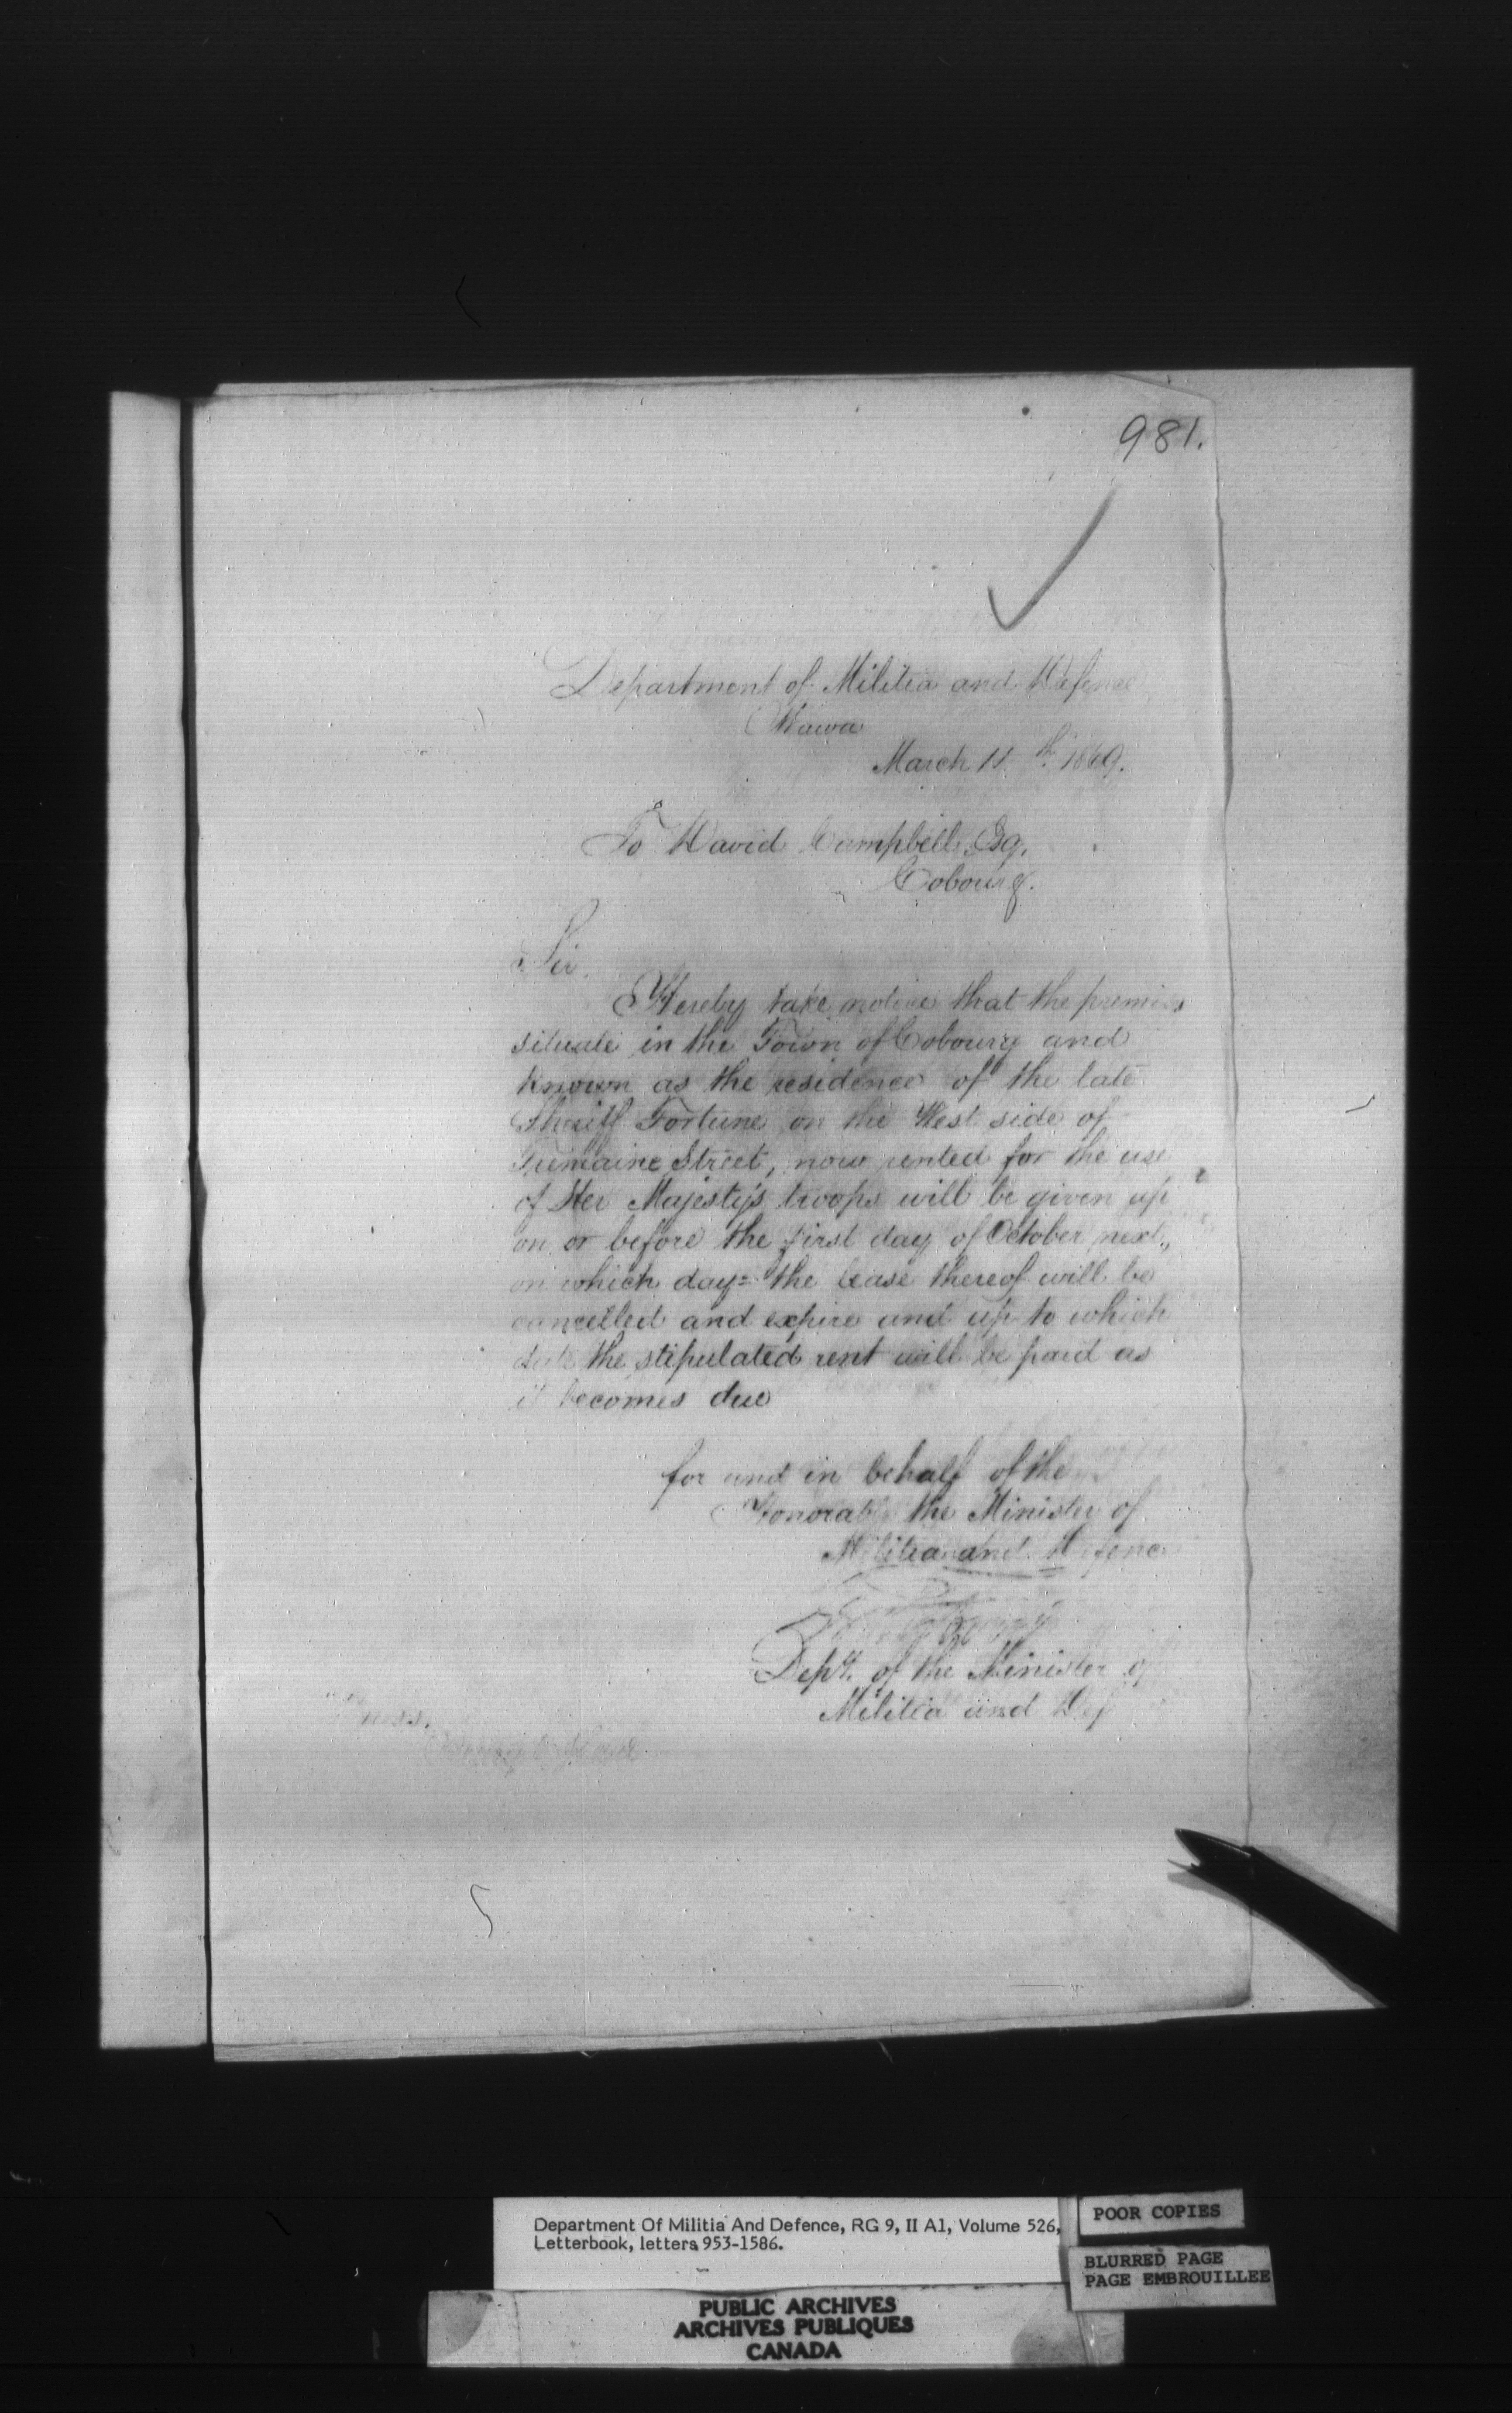 981.
Department of Militia and Defence
Ottawa
March 11th 1869.
To David Campbell Esq.
Cobourg.
Sir.
Hereby take notice that the premises
situate in the Town of Cobourg and
known as the residence of the late
Sheriff Fortune on the West side of
Tremaine Street, now rented for the use
of Her Majesty's troops will be given up
on or before the first day of October next.,
on which day= the lease thereof will be
cancelled and expire and up to which
date the stipulated rent will be paid as
it becomes due
for and in behalf of the
Honorable the Minister of
Militia and Defence
Depy. of the Minister of
Militia and Def
Department Of Militia And Defence, RG 9, II A1, Volume 526,
Letterbook, letters 953-1586.
POOR COPIES
BLURRED PAGE
PAGE EMBROUILLEE
PUBLIC ARCHIVES
ARCHIVES PUBLIQUES
CANADA